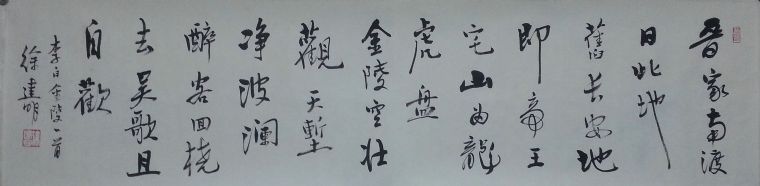 晋家南渡
日此地
舊长安地
即帝王
宅山为龍
虎盘
金陵空壮
觀天塹
净波澜
醉客回桡
去吴歌且
自歡
李白金陵一首
徐建明